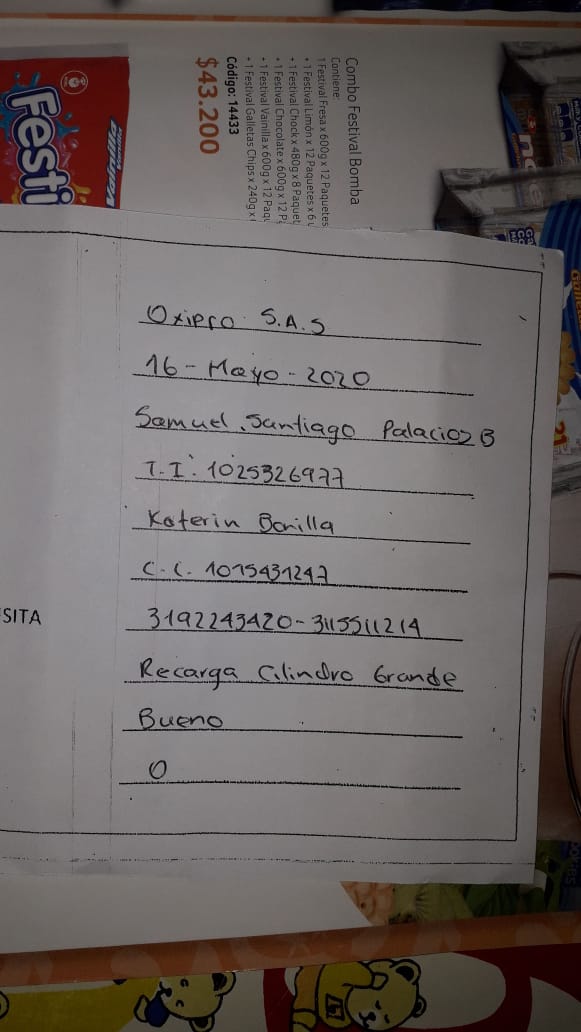 Combo Festival Bomba
Contiene:
1 Festival Fresa x 600g x 12 Paquetes
+ 1 Festival Limón x 12 Paquetes x 6
+ 1 Festival Chock x 480g x 8 Paquet
+ 1 Festival Chocolate x 600g x 12 P
+ 1 Festival Vainilla x 600g x 12 Paqu
+ 1 Festival Galletas Chips x 240g x
Código: 14433
$43.200
Festi
Oxipro S.A.S
16 - Mayo - 2020
Samuel Santiago Palacios B
T.I: 1025326977
Katerin Bonilla
C.C. 1015431247
3192243420-3115511214
Recarga Cilindro Grande
Bueno
0
SITA